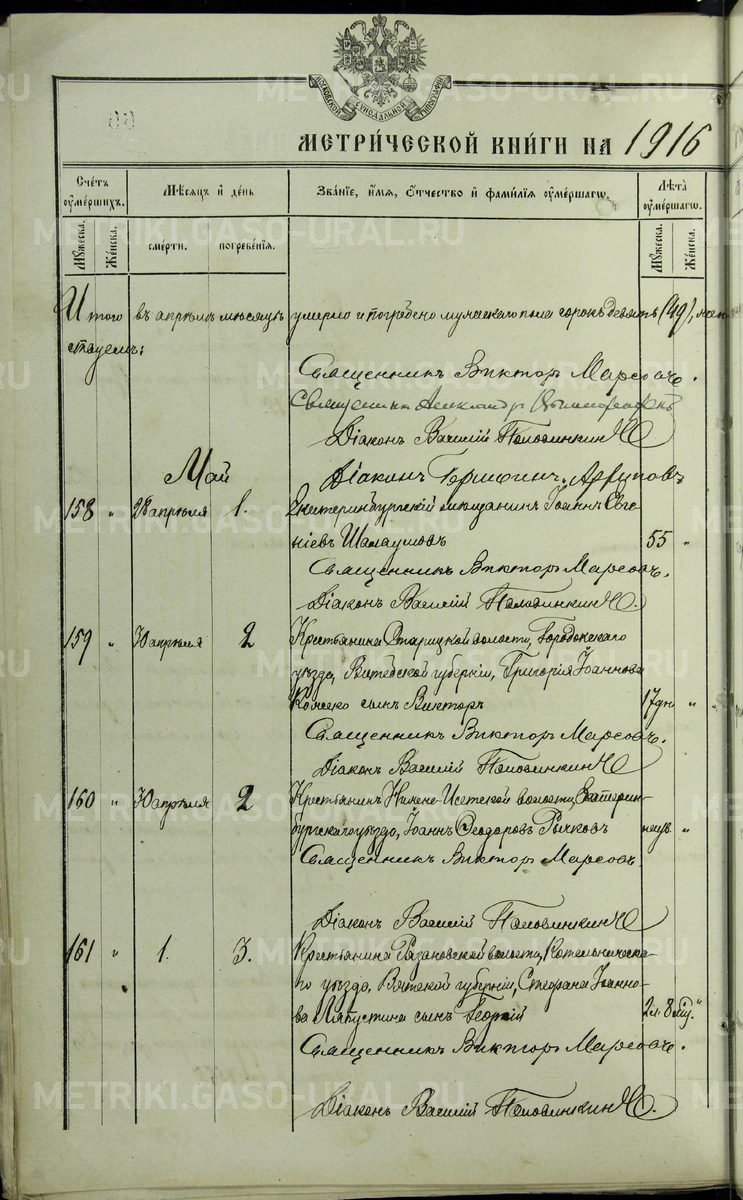 МОСКОВСКОЙ СѴНОДАЛЬНОЙ ТИПОГРАФІИ
МЕТРИ́ЧЕСКОЙ КНИ́ГИ НА 1916
Сче́тъ ᲂу҆ме́ршихъ.
Мѣ́сяцъ и҆ де́нь
Зва́нїе, и҆́мѧ, ѻ҆́тчество и҆ фами́лїѧ ᲂу҆ме́ршагѡ.
Лѣ́та ᲂу҆ме́ршагѡ.
Мꙋ́жеска.
Же́нска.
сме́рти.
погребе́нїѧ.
Мꙋ́жеска.
Же́нска.
Итого въ апрѣлѣ мѣсяцѣ умерло и погребено мужескаго пола сорокъ девять (49), жен
Священникъ Викторъ Марсовъ.
Священникъ Александръ
Діаконъ Василій Половинкин
Май
Діаконъ
158 " 28 апрѣля 1. Екатеринбургскій мѣщанинъ Іоаннъ Евге
ніевъ Шалаушовъ 55 "
Священникъ Викторъ Марсовъ.
Діаконъ Василій Половинкин
159 " 30 апрѣля 2 Крестьянина Старицкой волости, Городокскаго
уѣзда, Витебской губерніи, Григорія Іоаннова
сынъ Викторъ 17 дн " "
Священникъ Викторъ Марсовъ.
Діаконъ Василій Половинкин
160 " 30 апрѣля 2 Крестьянинъ Нижне-Исетской волости, Екатерин-
бургскаго уѣзда, Іоаннъ Ѳеодоровъ Рычковъ неизв "
Священникъ Викторъ Марсовъ
Діаконъ Василій Половинкин
161 " 1. 3. Крестьянина Рязановской волости, Котельническа-
го уѣзда, Вятской губерніи, Стефана Іоанно-
ва Ляпустина сынъ Георгій 2 л. 8 мѣс. "
Священникъ Викторъ Марсовъ.
Діаконъ Василій Половинкин
METRIKI.GASO-URAL.RU